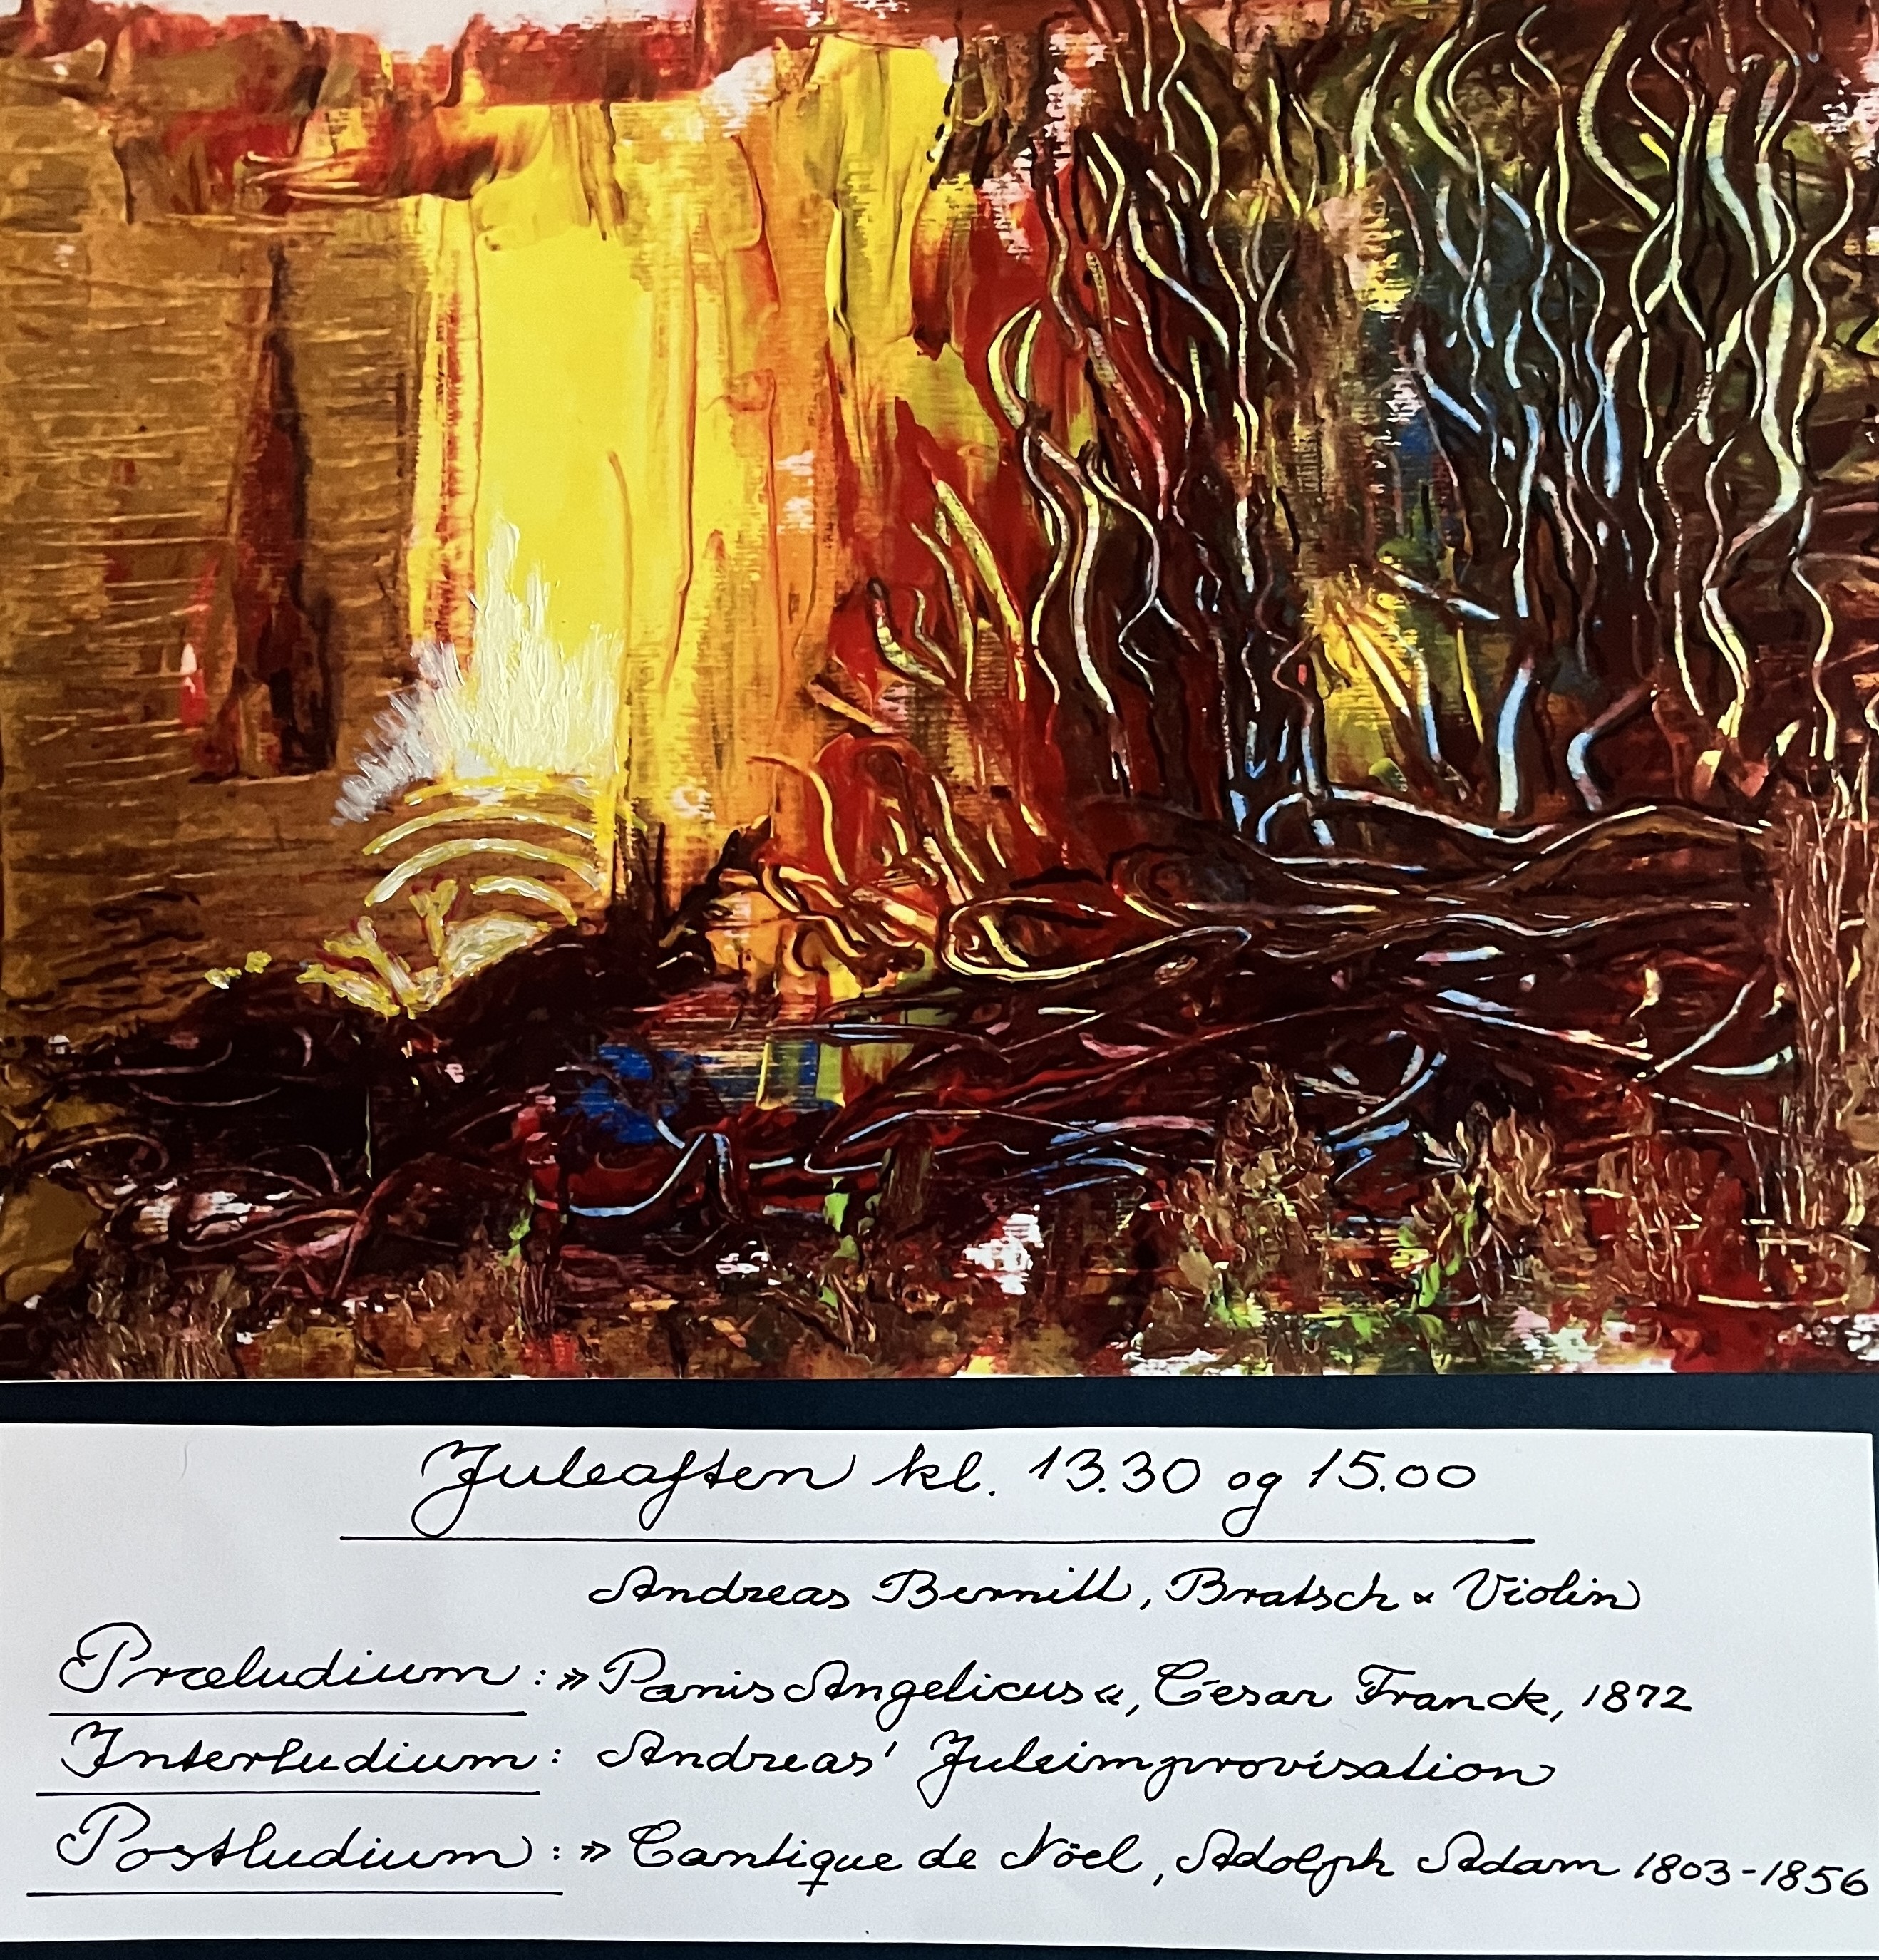 Juleaften kl. 13.30 og 15.00
Andreas Bernitt, Bratsch & Violin
Præludium: »Panis Angelicus«, César Franck, 1872
Interludium: Andreas' Juleimprovisation
Postludium: »Cantique de Nöel, Adolph Adam 1803-1856